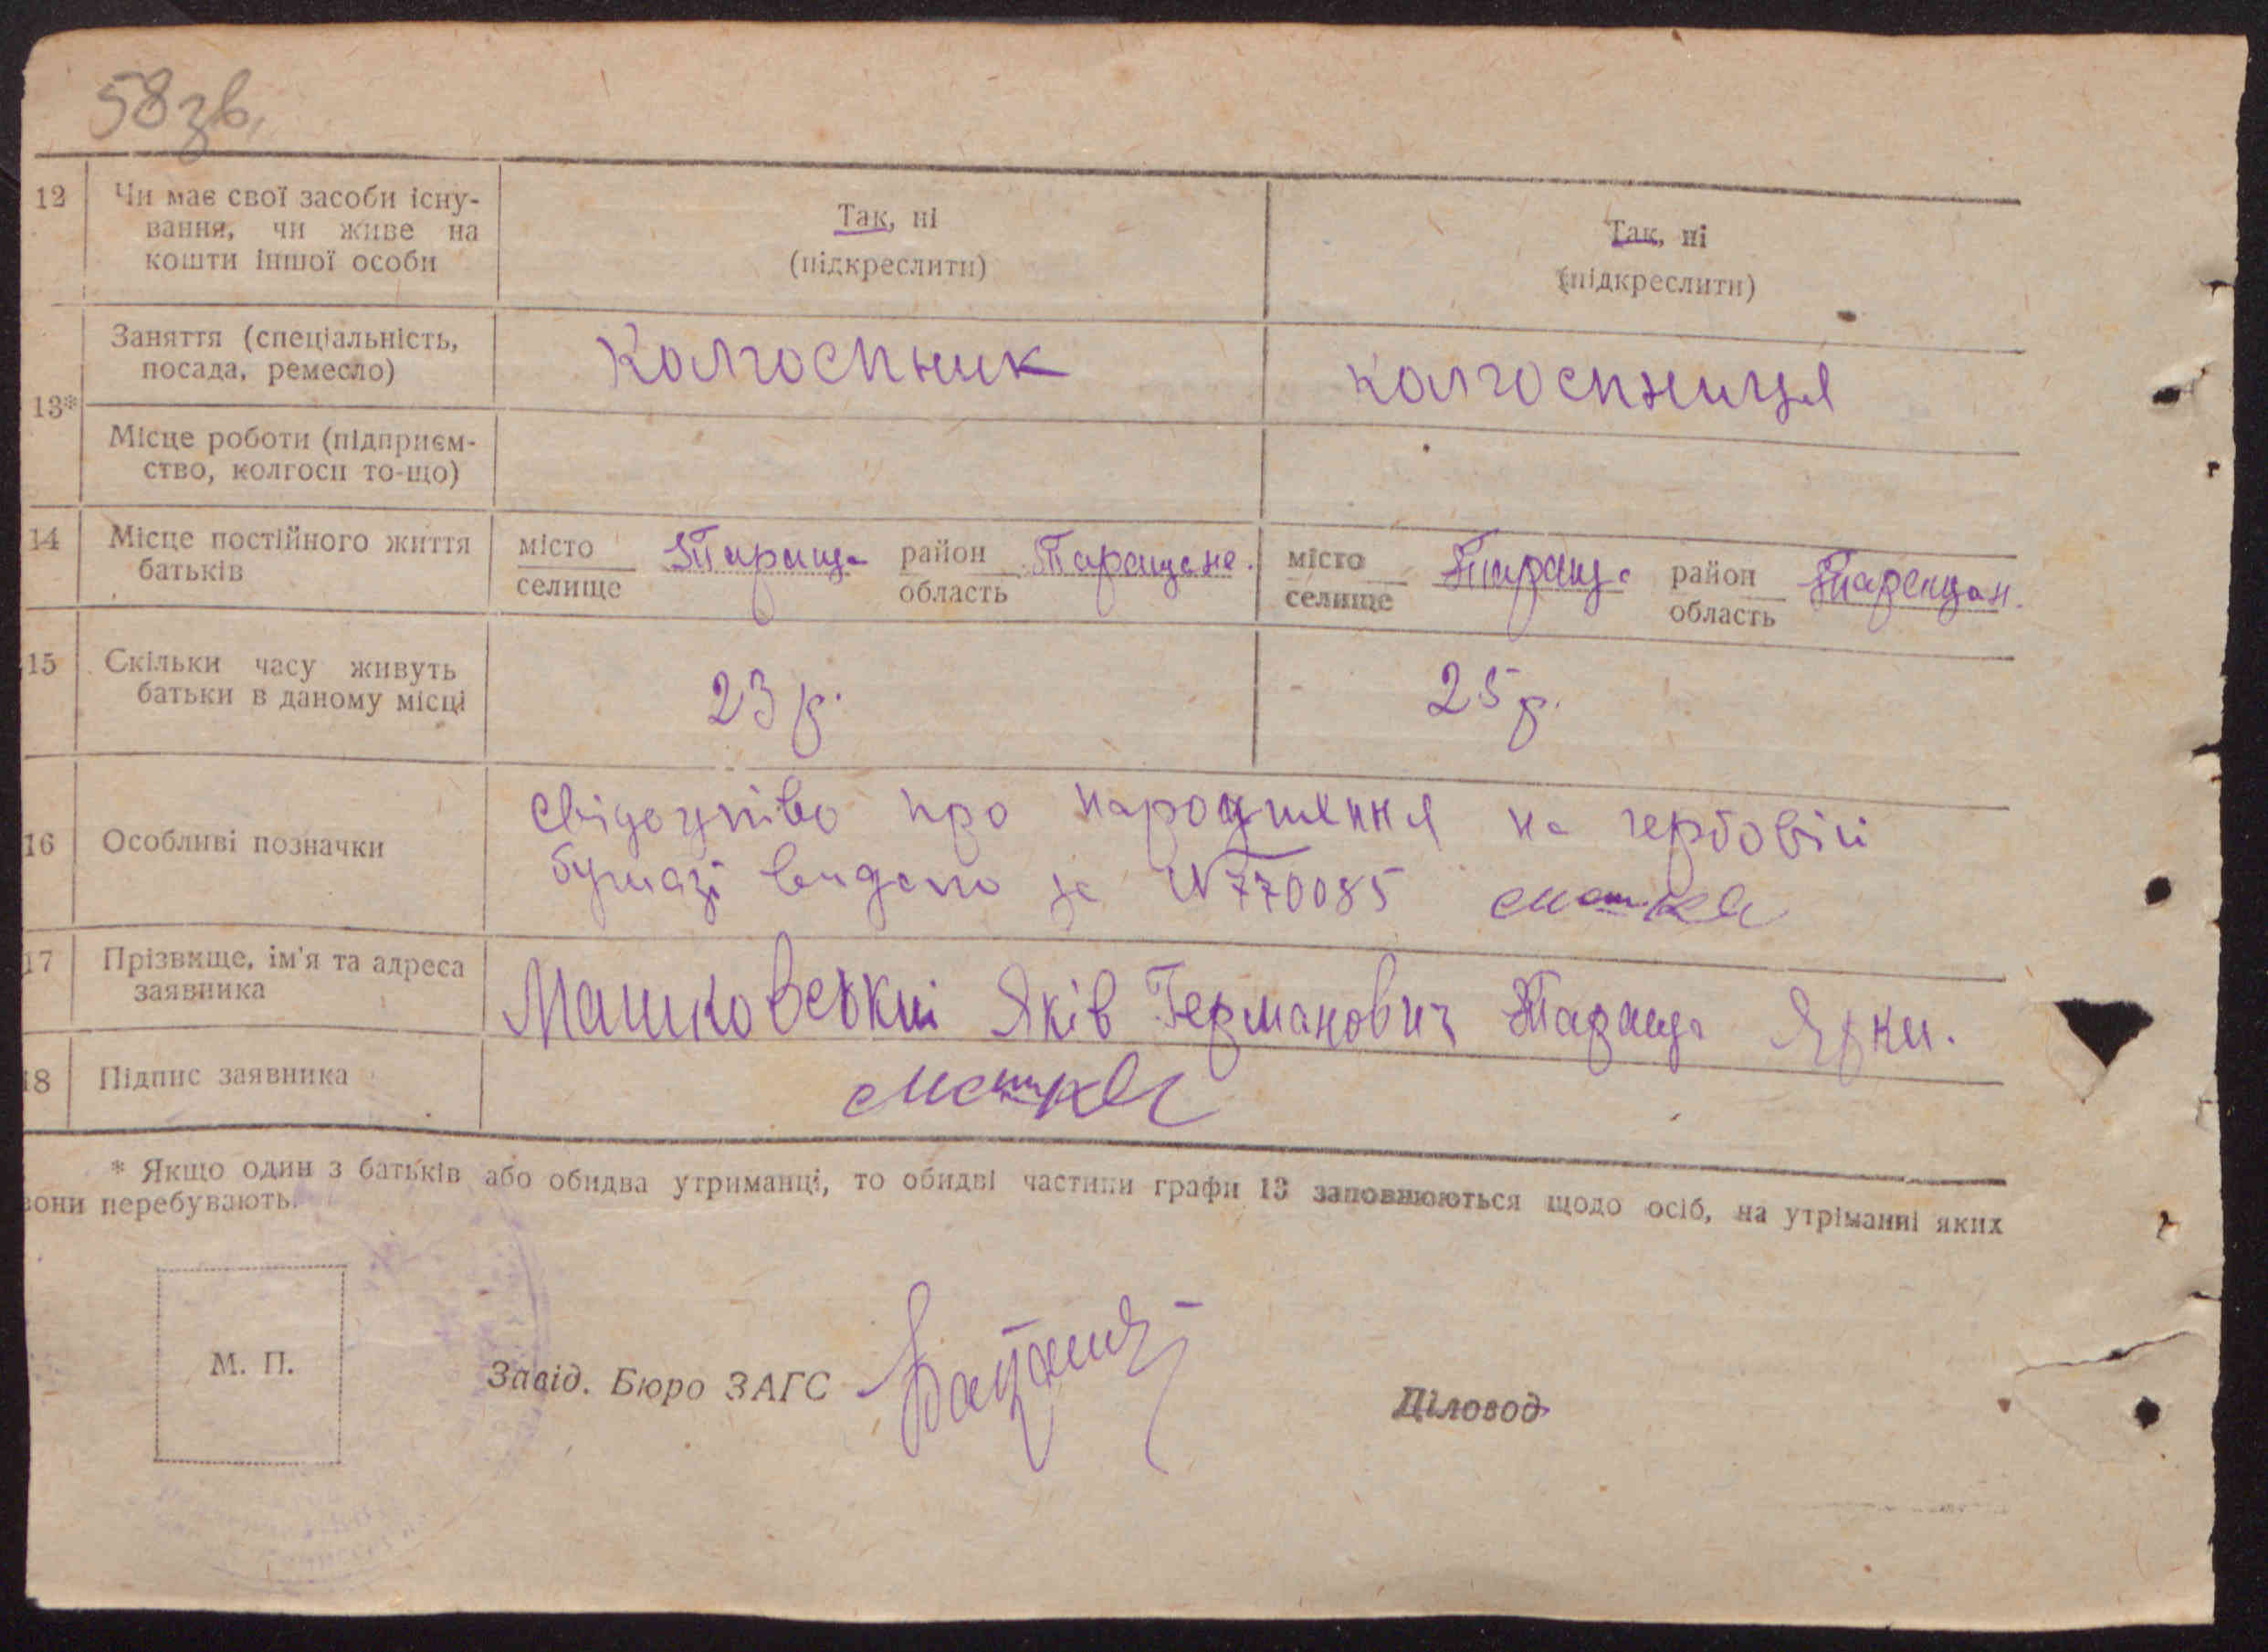 58 зв.
12 Чи має свої засоби існу-
вання, чи живе на
кошти іншої особи
Так, ні
(підкреслити)
Так, ні
(підкреслити)
13*
Заняття (спеціальність,
посада, ремесло)
Колгоспник
колгоспниця
Місце роботи (підприєм-
ство, колгосп то-що)
14 Місце постійного життя
батьків
місто
селище
Тараща
район
область
Таращане.
місто
селище
Тараща
район
область
Таращан.
15 Скільки часу живуть
батьки в даному місці
23 р.
25 р.
16 Особливі позначки
Свідоцтво про народження на гербовій
бумазі видано за № 770085
17 Прізвище, ім'я та адреса
заявника
Машковський Яків Германович Тараща Ярки.
18 Підпис заявника
* Якщо один з батьків або обидва утриманці, то обидві частини графи 13 заповнюються щодо осіб, на утріманні яких
вони перебувають.
М. П.
Завід. Бюро ЗАГС
Діловод